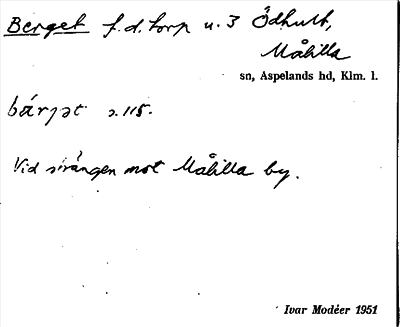 Berget f.d. torp u. 3 Ödhult,
Målilla
sn, Aspelands hd, Klm. l.
bárjət s. 115.
Vid svängen mot Målilla by.
Ivar Modéer 1951